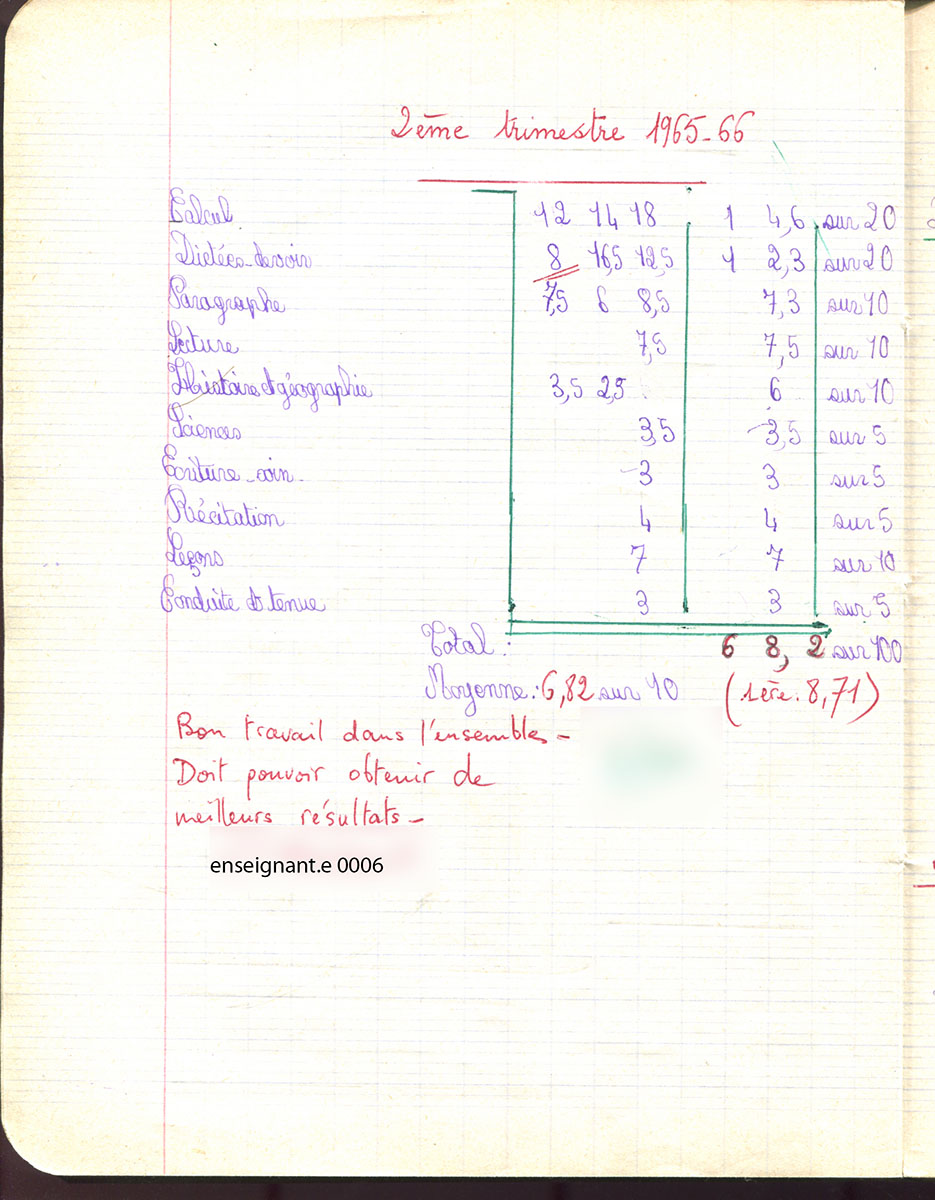 2ème trimestre 1965-66
Calcul 12 14 18 14,6 sur 20
Dictées-devoir 8 16,5 12,5 12,3 sur 20
Paragraphe 7,5 6 8,5 7,3 sur 10
Lecture 7,5 7,5 sur 10
Histoire et géographie 3,5 2,5 6 sur 10
Sciences 3,5 3,5 sur 5
Ecriture-soin 3 3 sur 5
Récitation 4 4 sur 5
Leçons 7 7 sur 10
Conduite et tenue 3 3 sur 5
Total : 68,2 sur 100
Moyenne : 6,82 sur 10 (1ère. 8,71)
Bon travail dans l'ensemble -
Doit pouvoir obtenir de
meilleurs résultats -
enseignant.e 0006